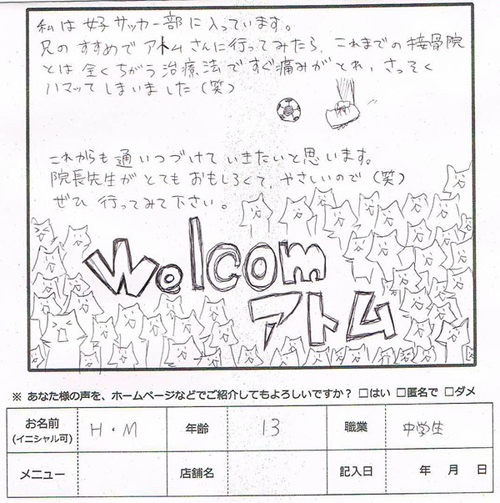 私は女子サッカー部に入っています。
兄のすすめでアトムさんに行ってみたら、これまでの接骨院
とは全くちがう治療法ですぐ痛みがとれ、さっそく
ハマッてしまいました(笑)
これからも通いつづけていきたいと思います。
院長先生がとてもおもしろくて、やさしいので(笑)
ぜひ行ってみて下さい。
Welcom
アトム
※ あなた様の声を、ホームページなどでご紹介してもよろしいですか? □はい □匿名で □ダメ
お名前 H・M 年齢 13 職業 中学生
(イニシャル可)
メニュー 店舗名 記入日 年 月 日